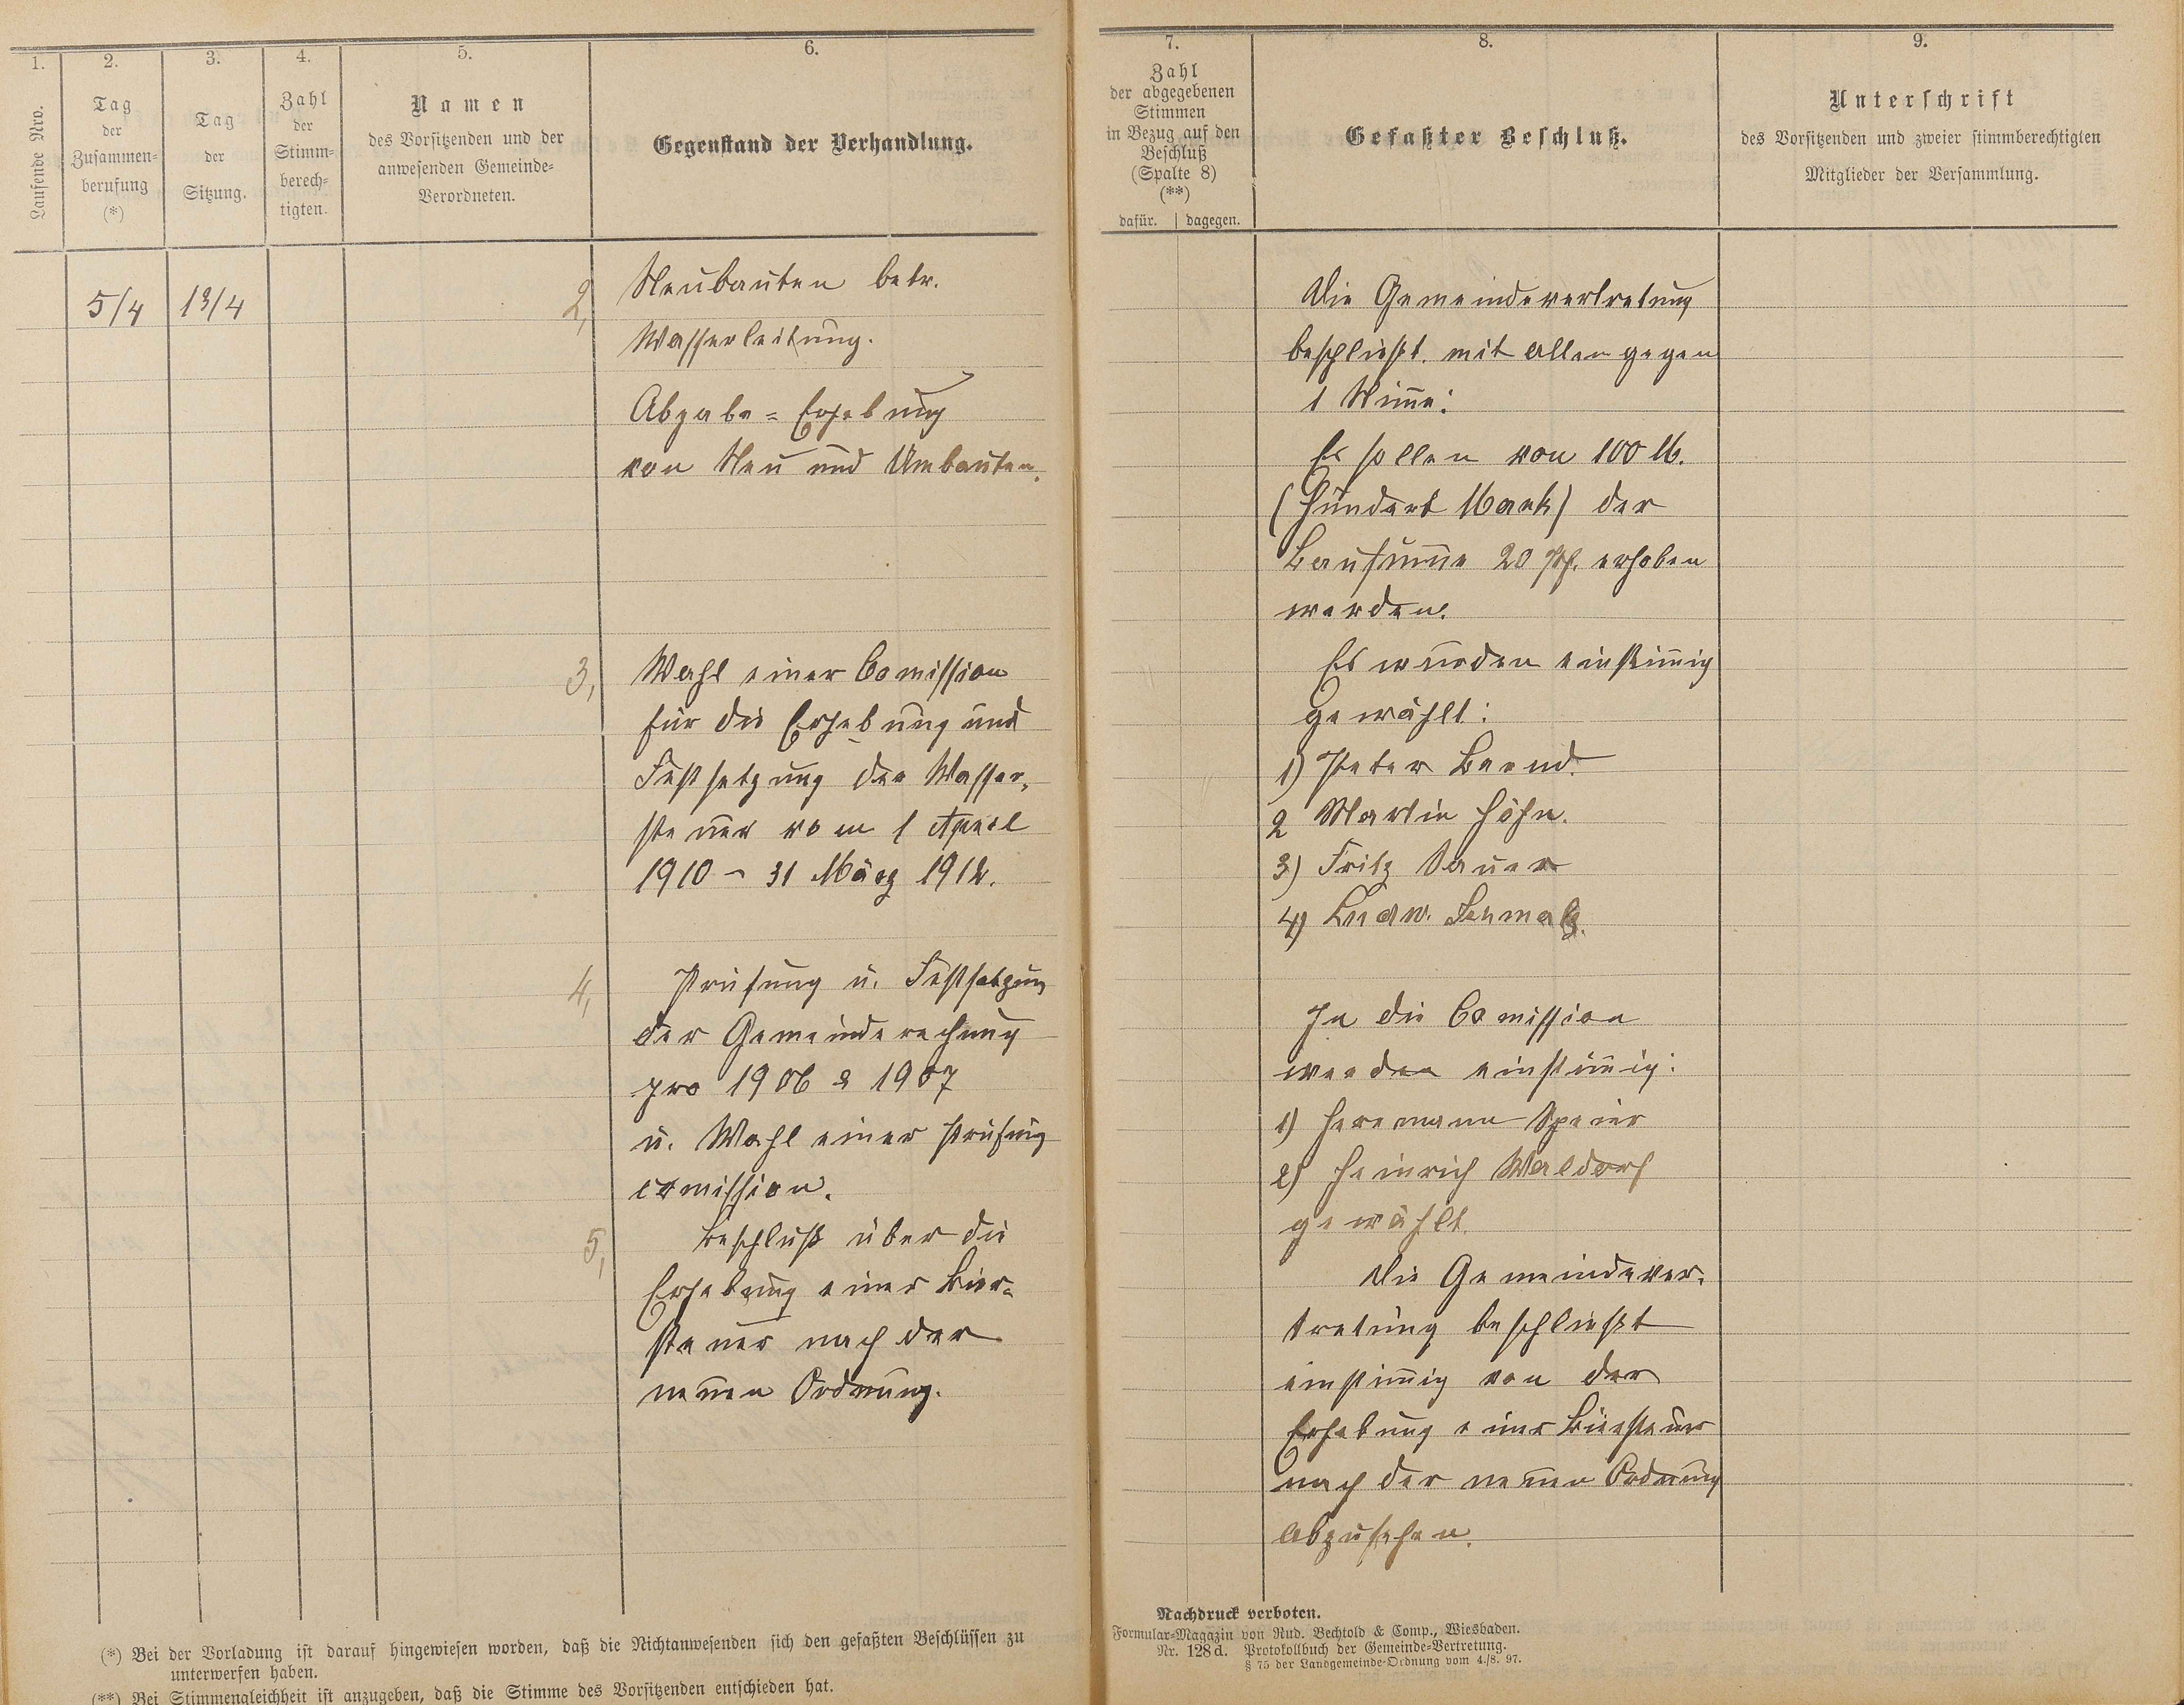 1.
Laufende Nro.
2.
Tag
der
Zusammen-
berufung
(*)
3.
Tag
der
Sitzung.
4.
Zahl
der
Stimm-
berech-
tigten.
5.
Namen
des Vorsitzenden und der
anwesenden Gemeinde-
Verordneten.
6.
Gegenstand der Verhandlung.
5/4
13/4
2,
Neubauten betr.
Wasserleitung.
Abgabe-Erhebung
von Neu und Umbauten.
3,
Wahl einer Com̄ission
für die Erhebung und
Festsetzung der Wasser-
steuer vom 1 April
1910 - 31 März 1912.
4,
Prüfung u. Festsetzung
der Gemeinderechnung
pro 1906 & 1907
u. Wahl einer Prüfung
com̄ission.
5,
Beschluß über die
Erhebung einer Bier-
steuer nach der
neuen Ordnung.
(*) Bei der Vorladung ist darauf hingewiesen worden, daß die Nichtanwesenden sich den gefaßten Beschlüssen zu
unterwerfen haben.
(**) Bei Stimmengleichheit ist anzugeben, daß die Stimme des Vorsitzenden entschieden hat.
7.
Zahl
der abgegebenen
Stimmen
in Bezug auf den
Beschluß
(Spalte 8)
(**)
dafür. | dagegen.
8.
Gefaßter Beschluß.
9.
Unterschrift
des Vorsitzenden und zweier stimmberechtigten
Mitglieder der Versammlung.
Die Gemeindevertretung
beschließt mit allen gegen
1 Stim̄e:
Es sollen von 100 M.
(Hundert Mark) der
Bausum̄e 20 Pf. erhoben
werden.
Es wurden einstim̄ig
gewählt:
1) Peter Berend.
2 Martin Höhn.
3) Fritz Sauer
4) Ludw. Schmalz.
In die Com̄ission
werden einstim̄ig:
1) Herrmann Speier
2) Heinrich Waldorf
gewählt.
Die Gemeindever-
tretung beschließt
einstim̄ig von der
Erhebung einer Biersteuer
nach der neuen Ordnung
abzusehen.
Nachdruck verboten.
Formular-Magazin von Rud. Bechtold & Comp., Wiesbaden.
Nr. 128d. Protokollbuch der Gemeinde-Vertretung.
§ 75 der Landgemeinde-Ordnung vom 4./8. 97.